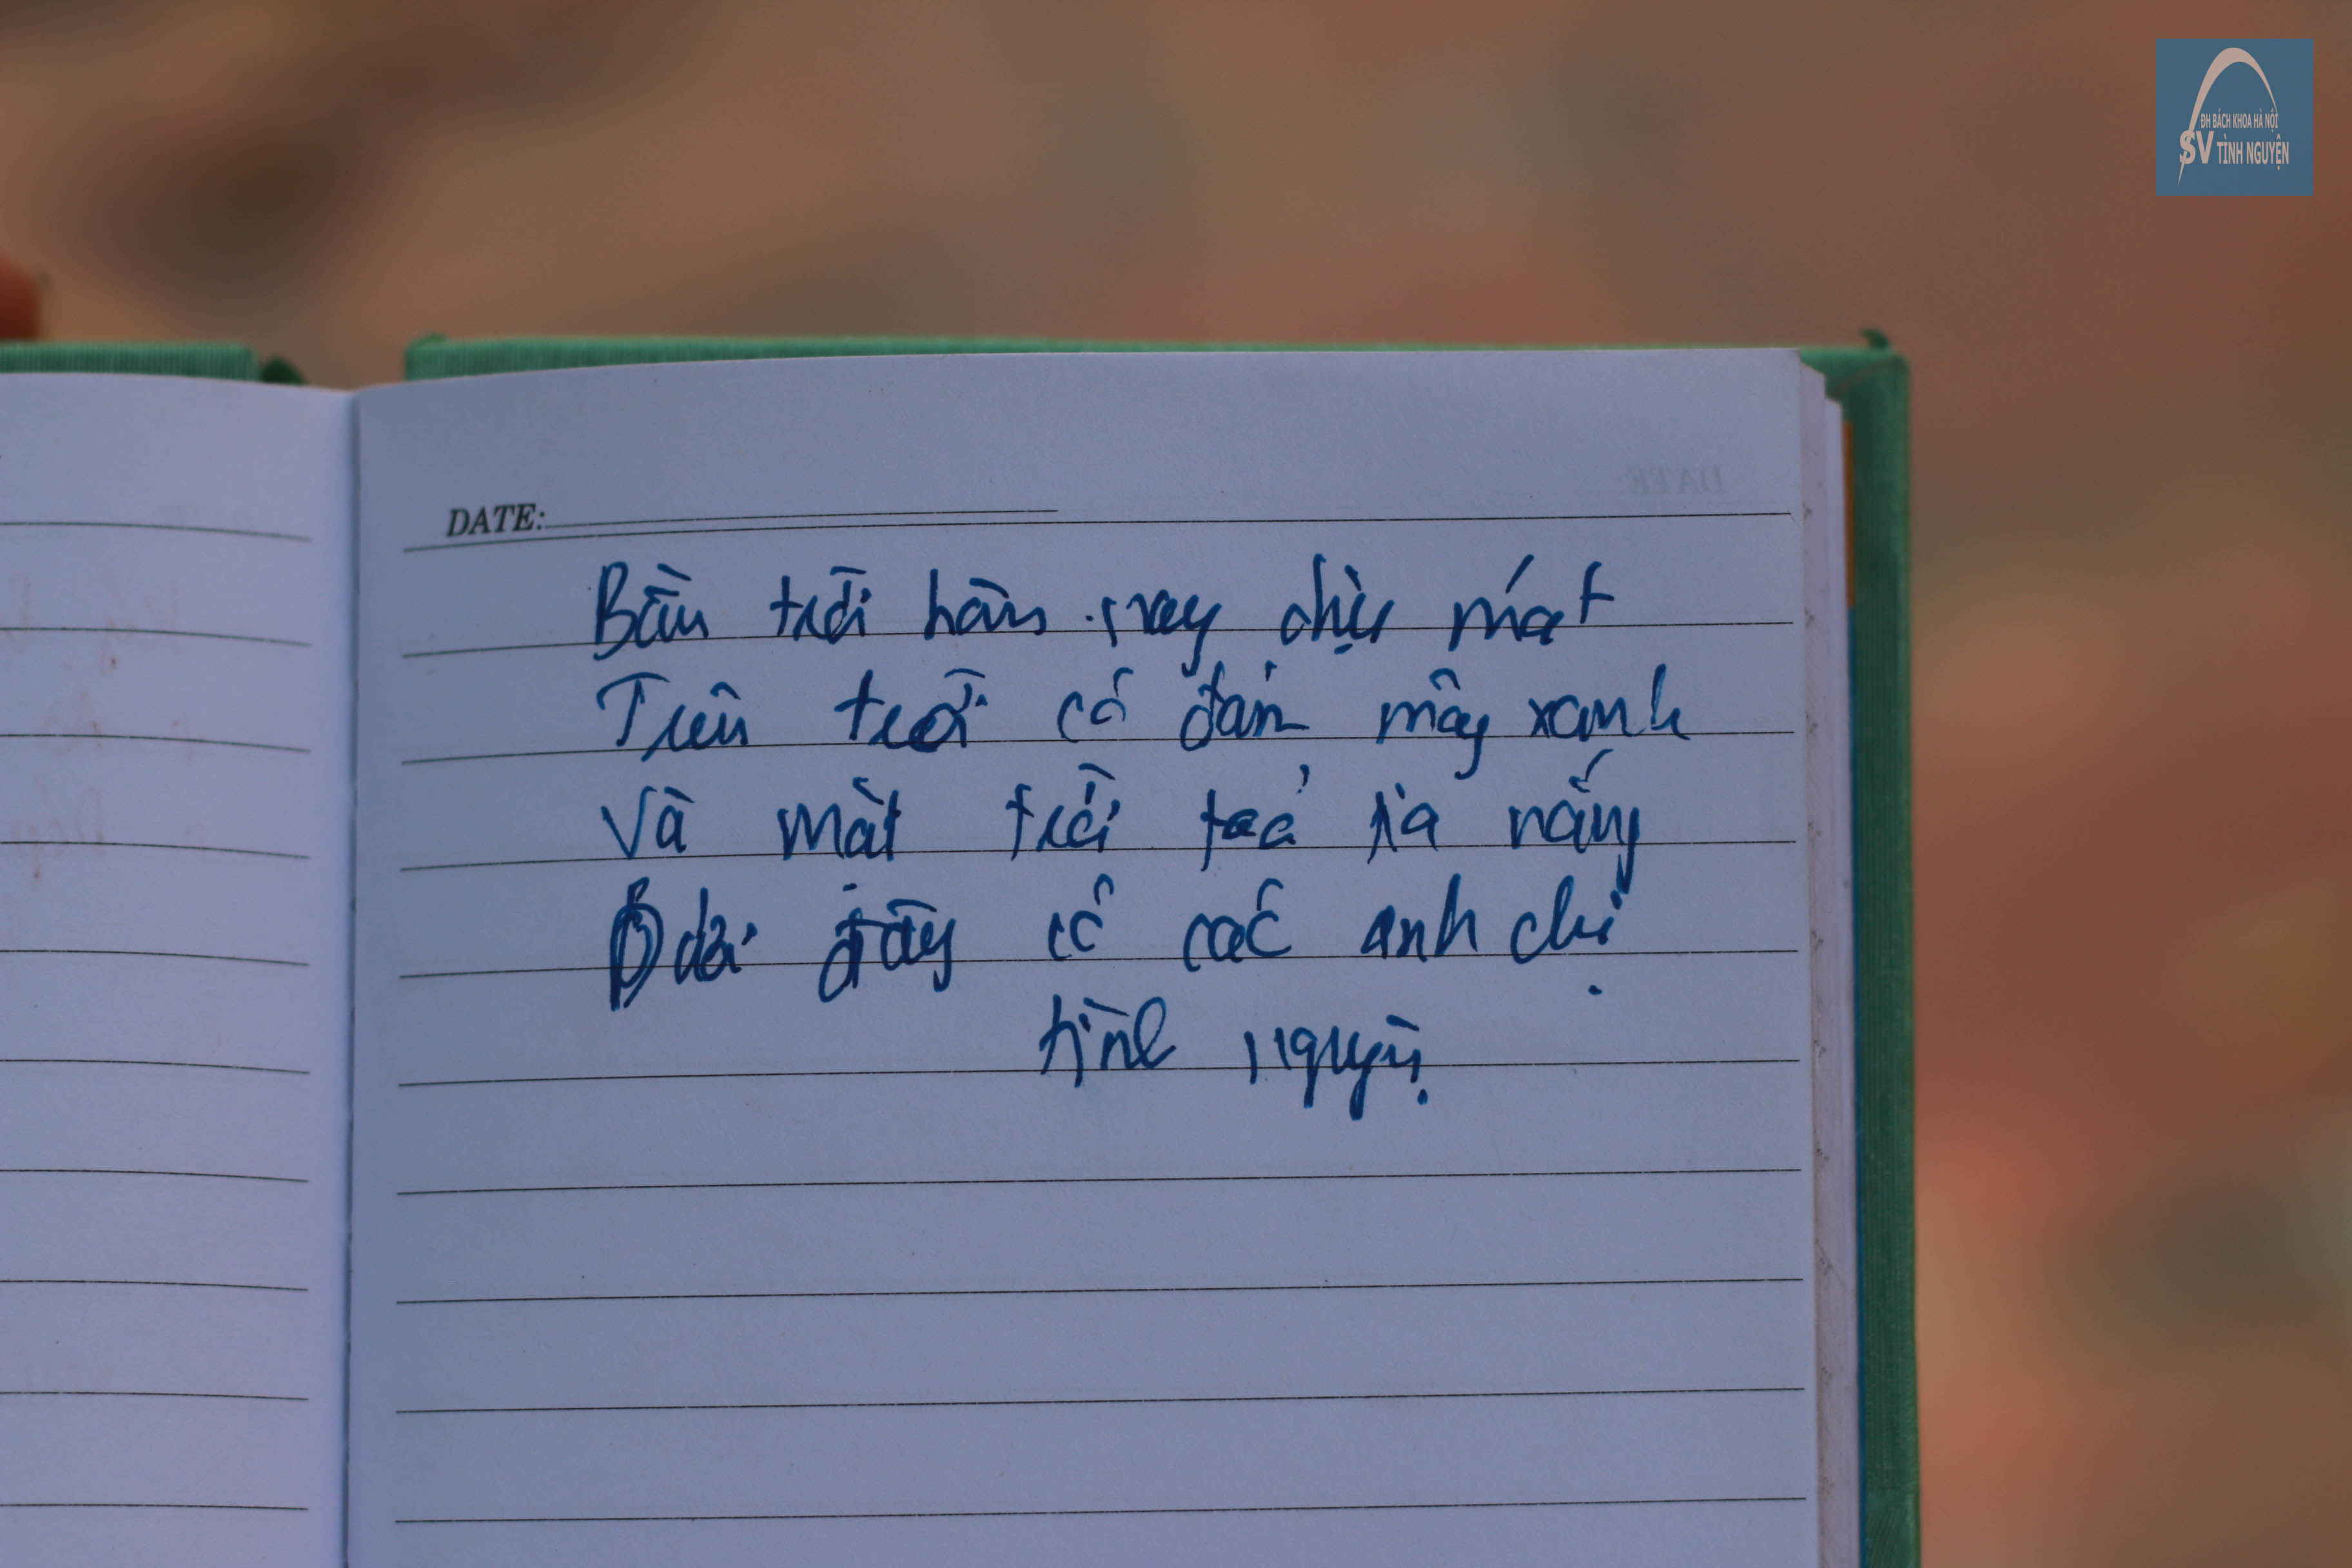 ĐH BÁCH KHOA HÀ NỘI
SV TÌNH NGUYỆN
DATE:
Bầu trời hôm nay dịu mát
Trên trời có đán mây xanh
Và mặt trời toả ra nắng
Ở dưới đây có các anh chị
tình nguyện